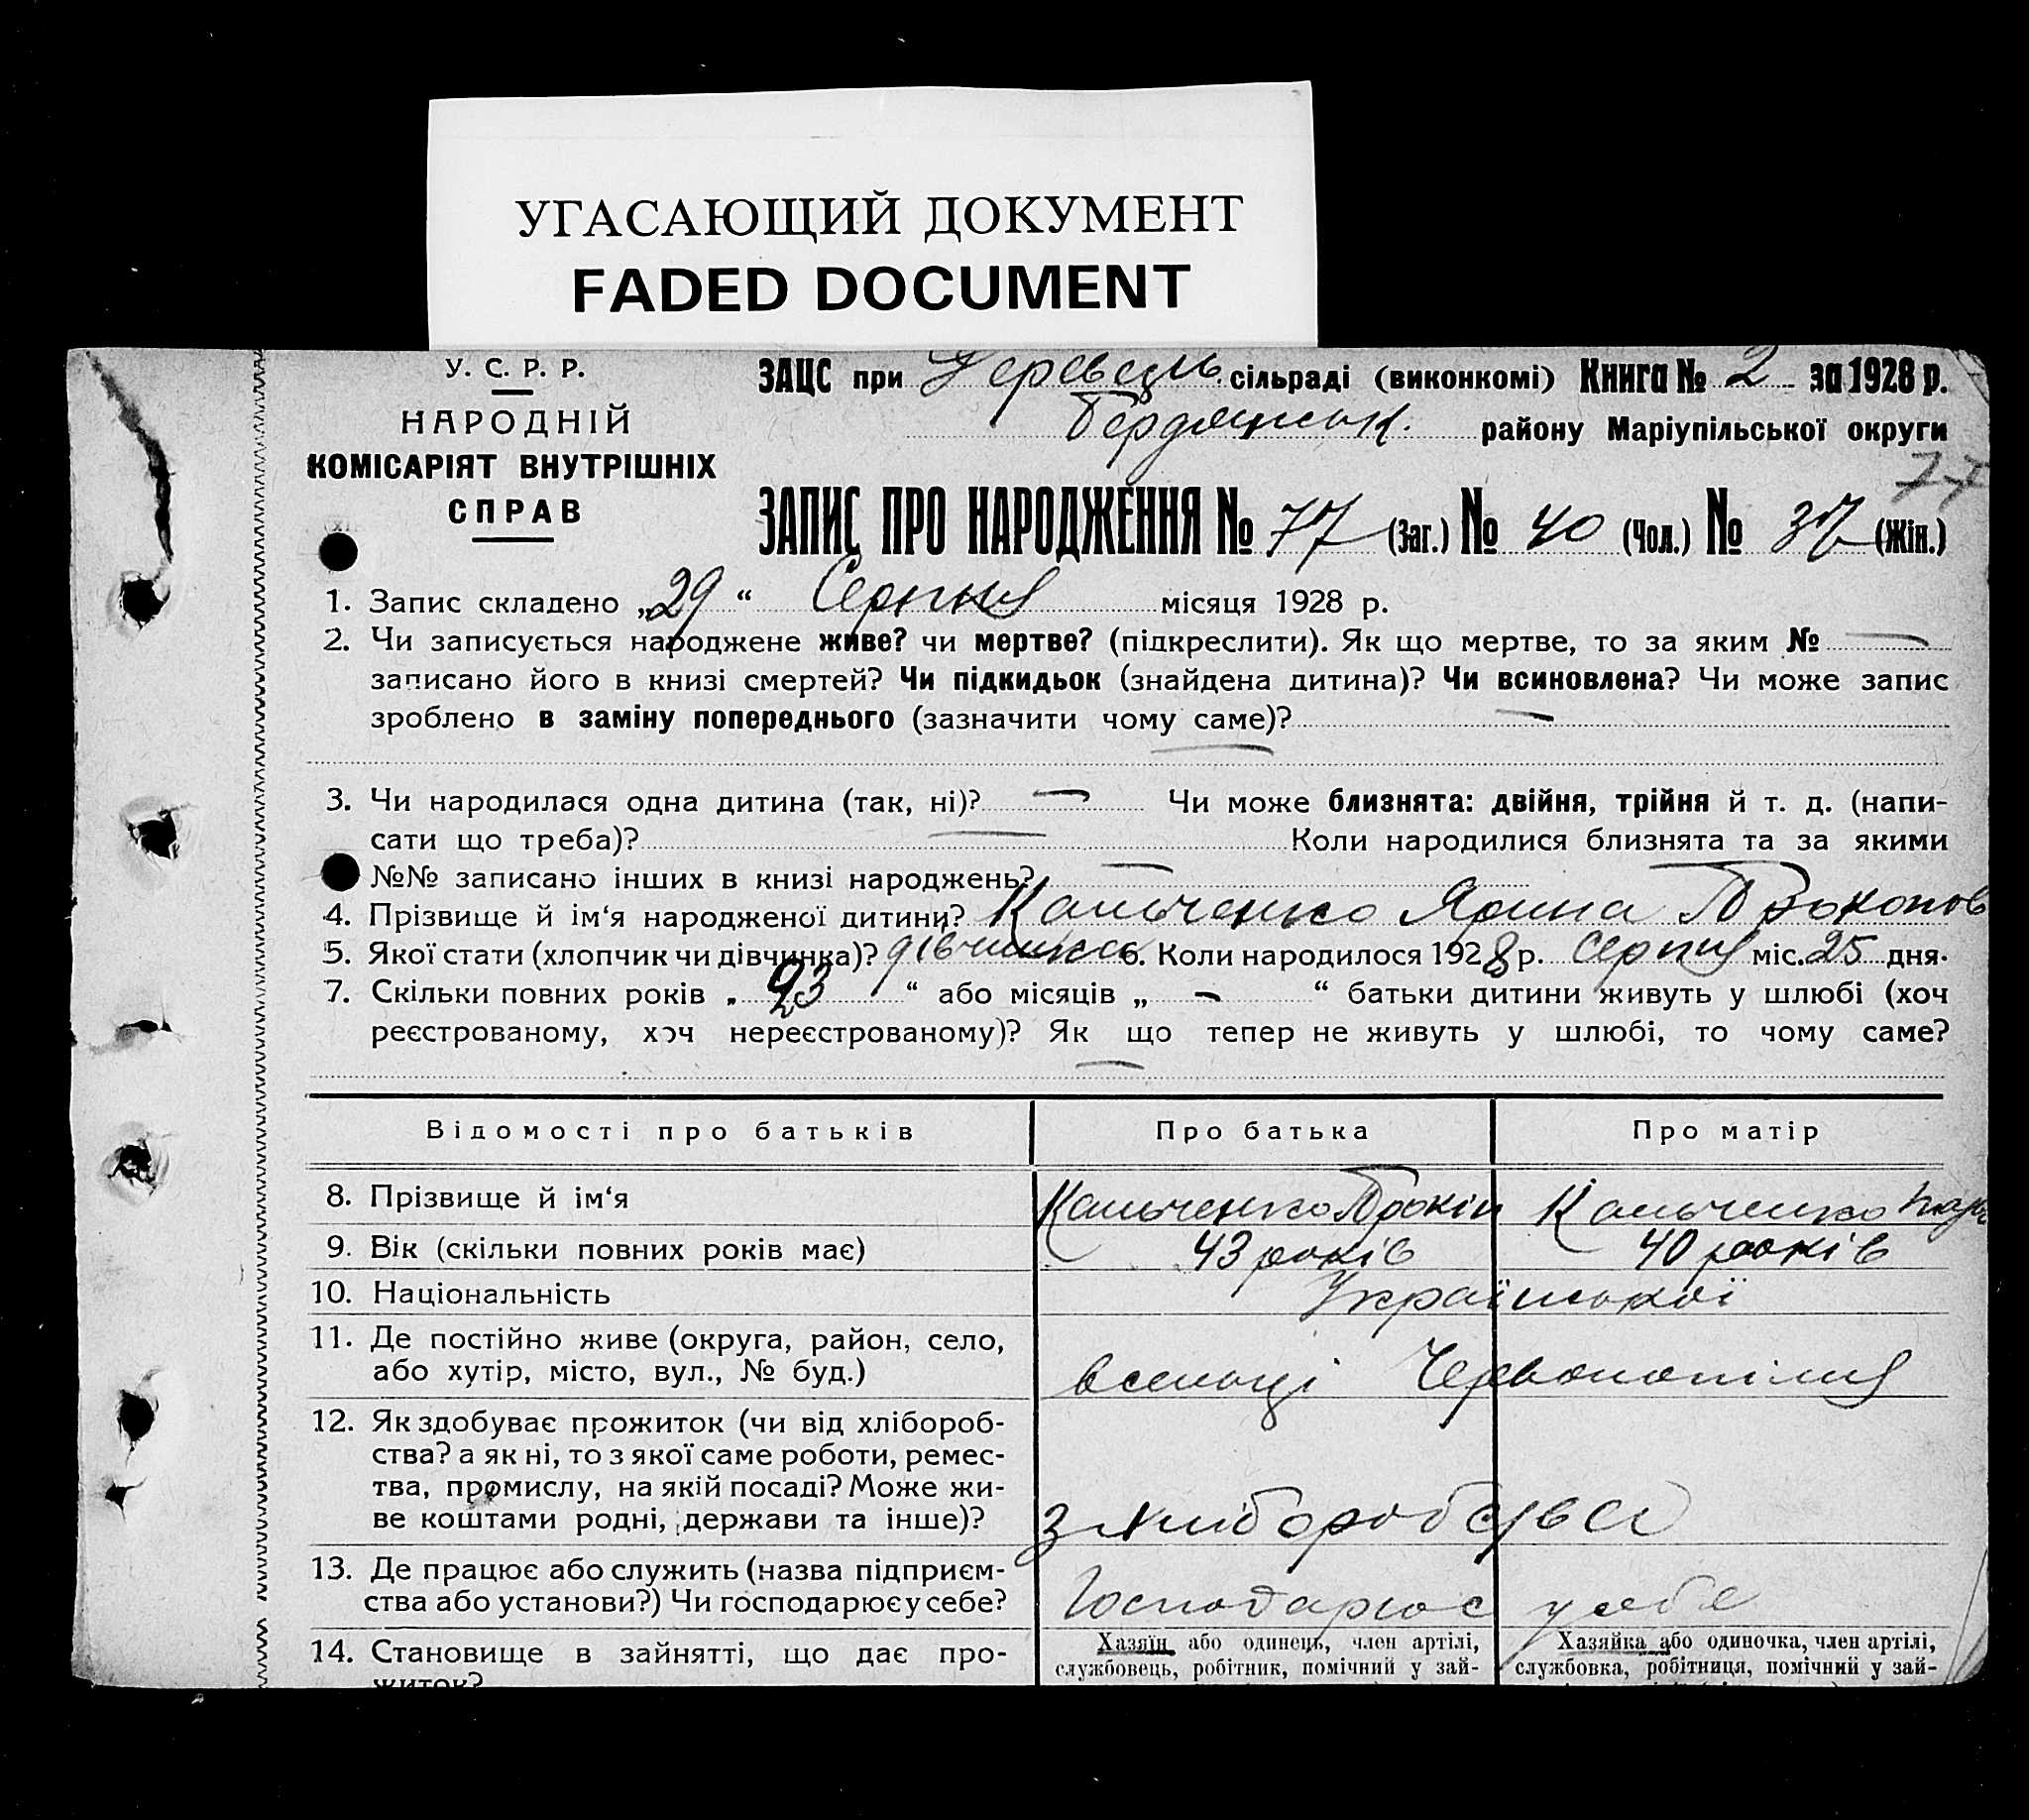 УГАСАЮЩИЙ ДОКУМЕНТ
FADED DOCUMENT
У. С. Р. Р.
НАРОДНІЙ
КОМІСАРІЯТ ВНУТРІШНІХ
СПРАВ
ЗАЦС при сільраді (виконкомі) Книга № 2 за 1928 р.
Бердянськ. району Маріупільської округи
77
ЗАПИС ПРО НАРОДЖЕННЯ № 77 (Заг.) № 40 (Чол.) № 37 (Жін.)
1. Запис складено „29“ Серпня місяця 1928 р.
2. Чи записується народжене живе? чи мертве? (підкреслити). Як що мертве, то за яким № —
записано його в книзі смертей? Чи підкидьок (знайдена дитина)? Чи всиновлена? Чи може запис
зроблено в заміну попереднього (зазначити чому саме)? —
3. Чи народилася одна дитина (так, ні)? — Чи може близнята: двійня, трійня й т. д. (напи-
сати що треба)? — Коли народилися близнята та за якими
№№ записано інших в книзі народжень? —
4. Прізвище й ім‘я народженої дитини? Кальченко Ярина Проконов
5. Якої стати (хлопчик чи дівчинка)? дівчинка 6. Коли народилося 1928 р. Серпня міс. 25 дня.
7. Скільки повних років „ 23 “ або місяців „ - “ батьки дитини живуть у шлюбі (хоч
реєстрованому, хоч нереєстрованому)? Як що тепер не живуть у шлюбі, то чому саме?
—
Відомості про батьків Про батька Про матір
8. Прізвище й ім‘я Кальченко Прокіп Кальченко
9. Вік (скільки повних років має) 43 років 40 років
10. Національність Української
11. Де постійно живе (округа, район, село,
або хутір, місто, вул., № буд.) в селищі Червонопілля
12. Як здобуває прожиток (чи від хлібороб-
ства? а як ні, то з якої саме роботи, ремес-
тва, промислу, на якій посаді? Може жи-
ве коштами родні, держави та інше)? з хліборобства
13. Де працює або служить (назва підприєм-
ства або установи?) Чи господарює у себе? Господарює у себе
14. Становище в зайнятті, що дає про-
житок?
Хазяїн або одинець, член артілі,
службовець, робітник, помічний у зай-
Хазяйка або одиночка, член артілі,
службовка, робітниця, помічний у зай-